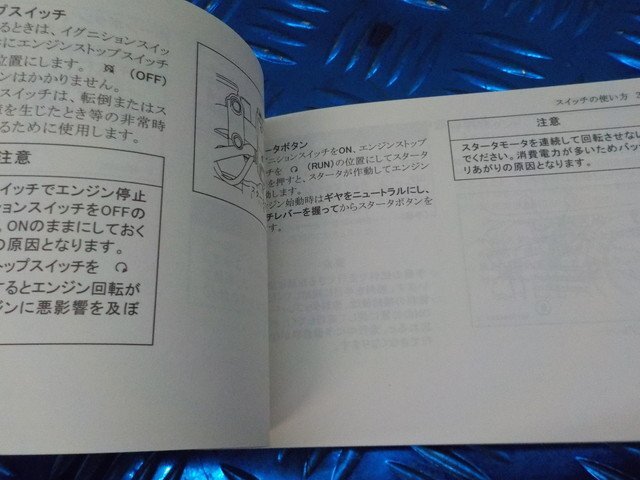 プスイッチ
るときは、イグニションスイッ
にエンジンストップスイッチ
位置にします。 (OFF)
ンはかかりません。
スイッチは、転倒またはス
を生じたとき等の非常時
るために使用します。
注意
イッチでエンジン停止
ションスイッチをOFFの
。ONのままにしておく
の原因となります。
トップスイッチを
するとエンジン回転が
ジンに悪影響を及ぼ
スイッチの使い方 2
ータボタン
ニションスイッチをON、エンジンストップ
チを (RUN) の位置にしてスタータ
を押すと、スタータが作動してエンジン
動します。
ジン始動時はギヤをニュートラルにし、
チレバーを握ってからスタータボタンを
す。
注意
スタータモータを連続して回転させない
でください。消費電力が多いためバッ
りあがりの原因となります。